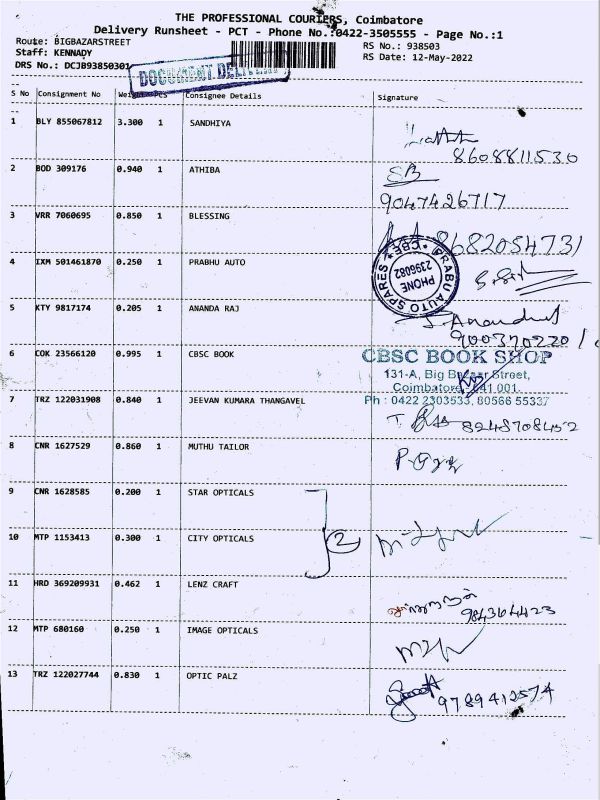 THE PROFESSIONAL COURIERS, Coimbatore
Delivery Runsheet - PCT - Phone No.:0422-3505555 - Page No.:1
Route: BIGBAZARSTREET
RS No.: 938503
Staff: KENNADY
RS Date: 12-May-2022
DRS No.: DCJB93850301
DOCUMENT
S No Consignment No Weight Pcs Consignee Details Signature
1 BLY 855067812 3.300 1 SANDHIYA
8608811530
2 BOD 309176 0.940 1 ATHIBA
SB
9047426717
3 VRR 7060695 0.850 1 BLESSING
8682054731
4 IXM 501461870 0.250 1 PRABHU AUTO
PRABU AUTO SPARES * CBE *
PHONE
2396082
5 KTY 9817174 0.205 1 ANANDA RAJ
6 COK 23566120 0.995 1 CBSC BOOK
CBSC BOOK SHOP
131-A, Big Bazaar Street,
Coimbatore 641 001.
Ph : 0422 2303533, 80566 55337
7 TRZ 122031908 0.840 1 JEEVAN KUMARA THANGAVEL
8248708452
8 CNR 1627529 0.860 1 MUTHU TAILOR
9 CNR 1628585 0.200 1 STAR OPTICALS
2
10 MTP 1153413 0.300 1 CITY OPTICALS
11 HRD 369209931 0.462 1 LENZ CRAFT
12 MTP 680160 0.250 1 IMAGE OPTICALS
13 TRZ 122027744 0.830 1 OPTIC PALZ
9789412574